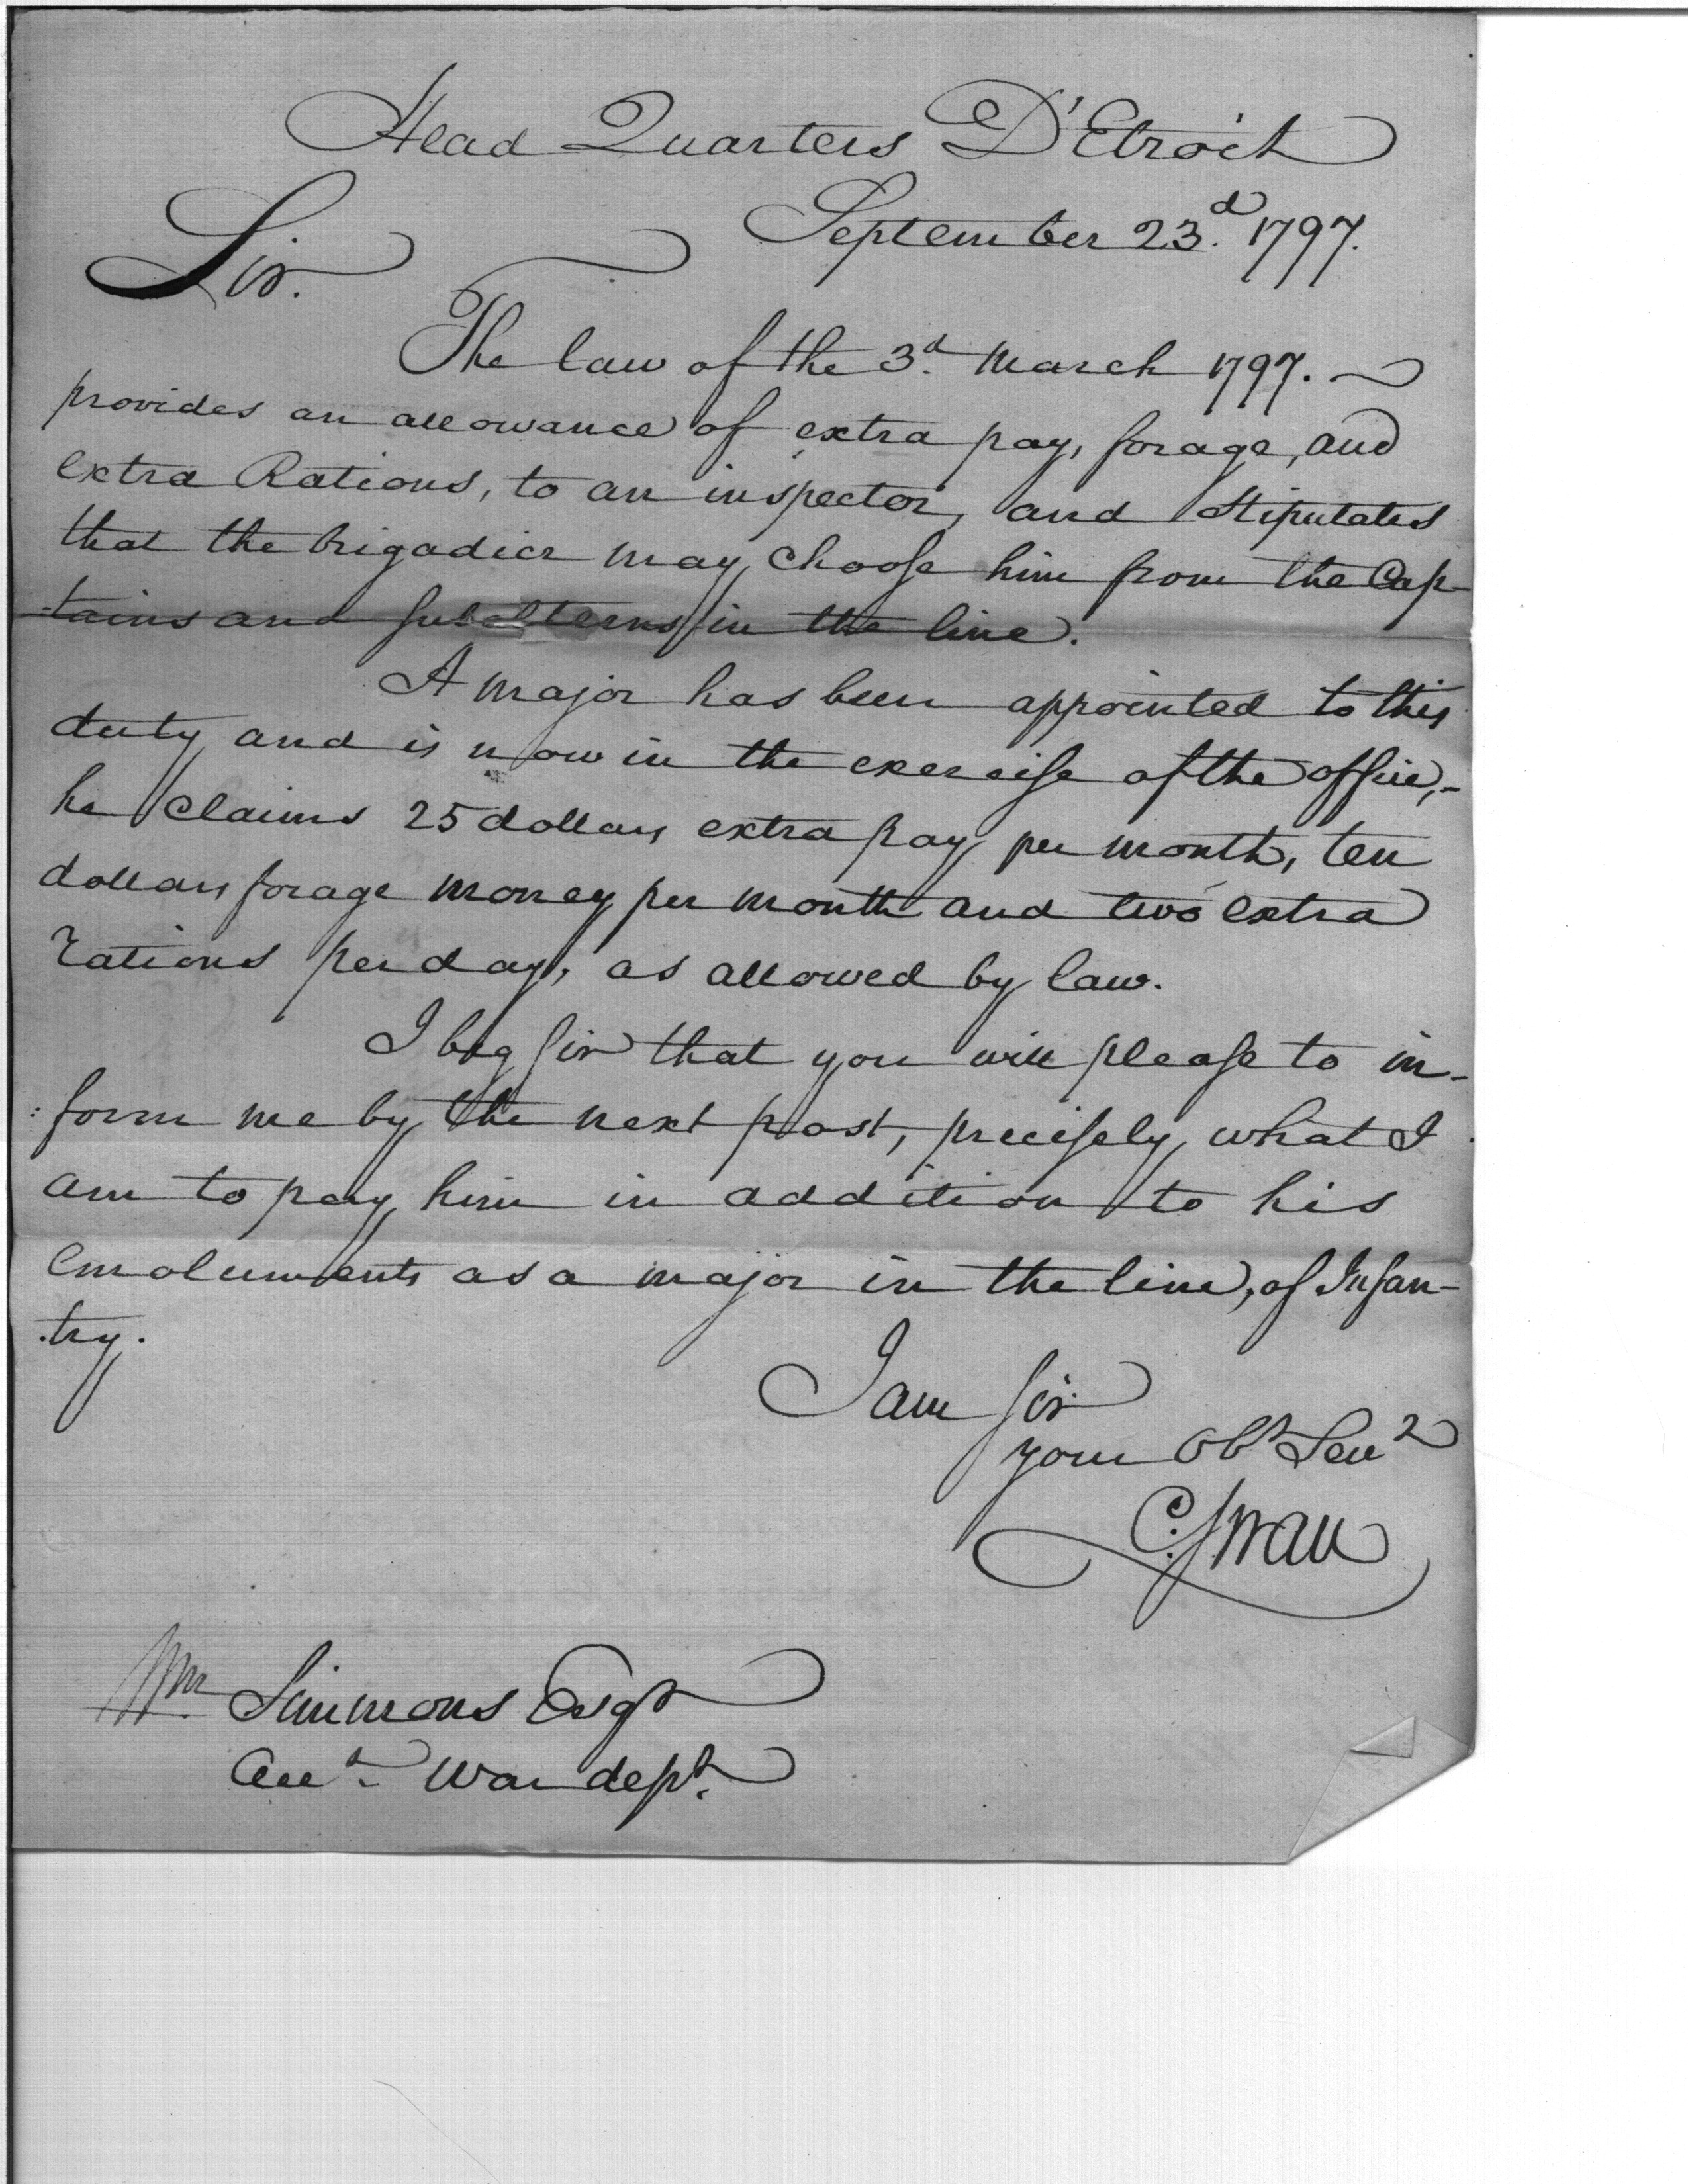 Head Quarters D'Etroit
September 23.d 1797.
Sir.
The law of the 3.d March 1797. ~
provides an allowance of extra pay, forage, and
extra Rations, to an inspector, and Stipulates
that the brigadier may choose him from the Cap-
-tains and subalterns in the line.
A major has been appointed to this
duty and is now in the exercise of the office,-
he claims 25 dollars extra pay per month, ten
dollars forage money per month and two extra
rations per day, as allowed by law.
I beg sir that you will please to in-
:form me by the next post, precisely what I
am to pay him in addition to his
emoluments as a major in the line, of Infan-
.try.
I am sir
your Obt Servt
C: Swan
Wm. Simmons Esqr
Acct. War dept.